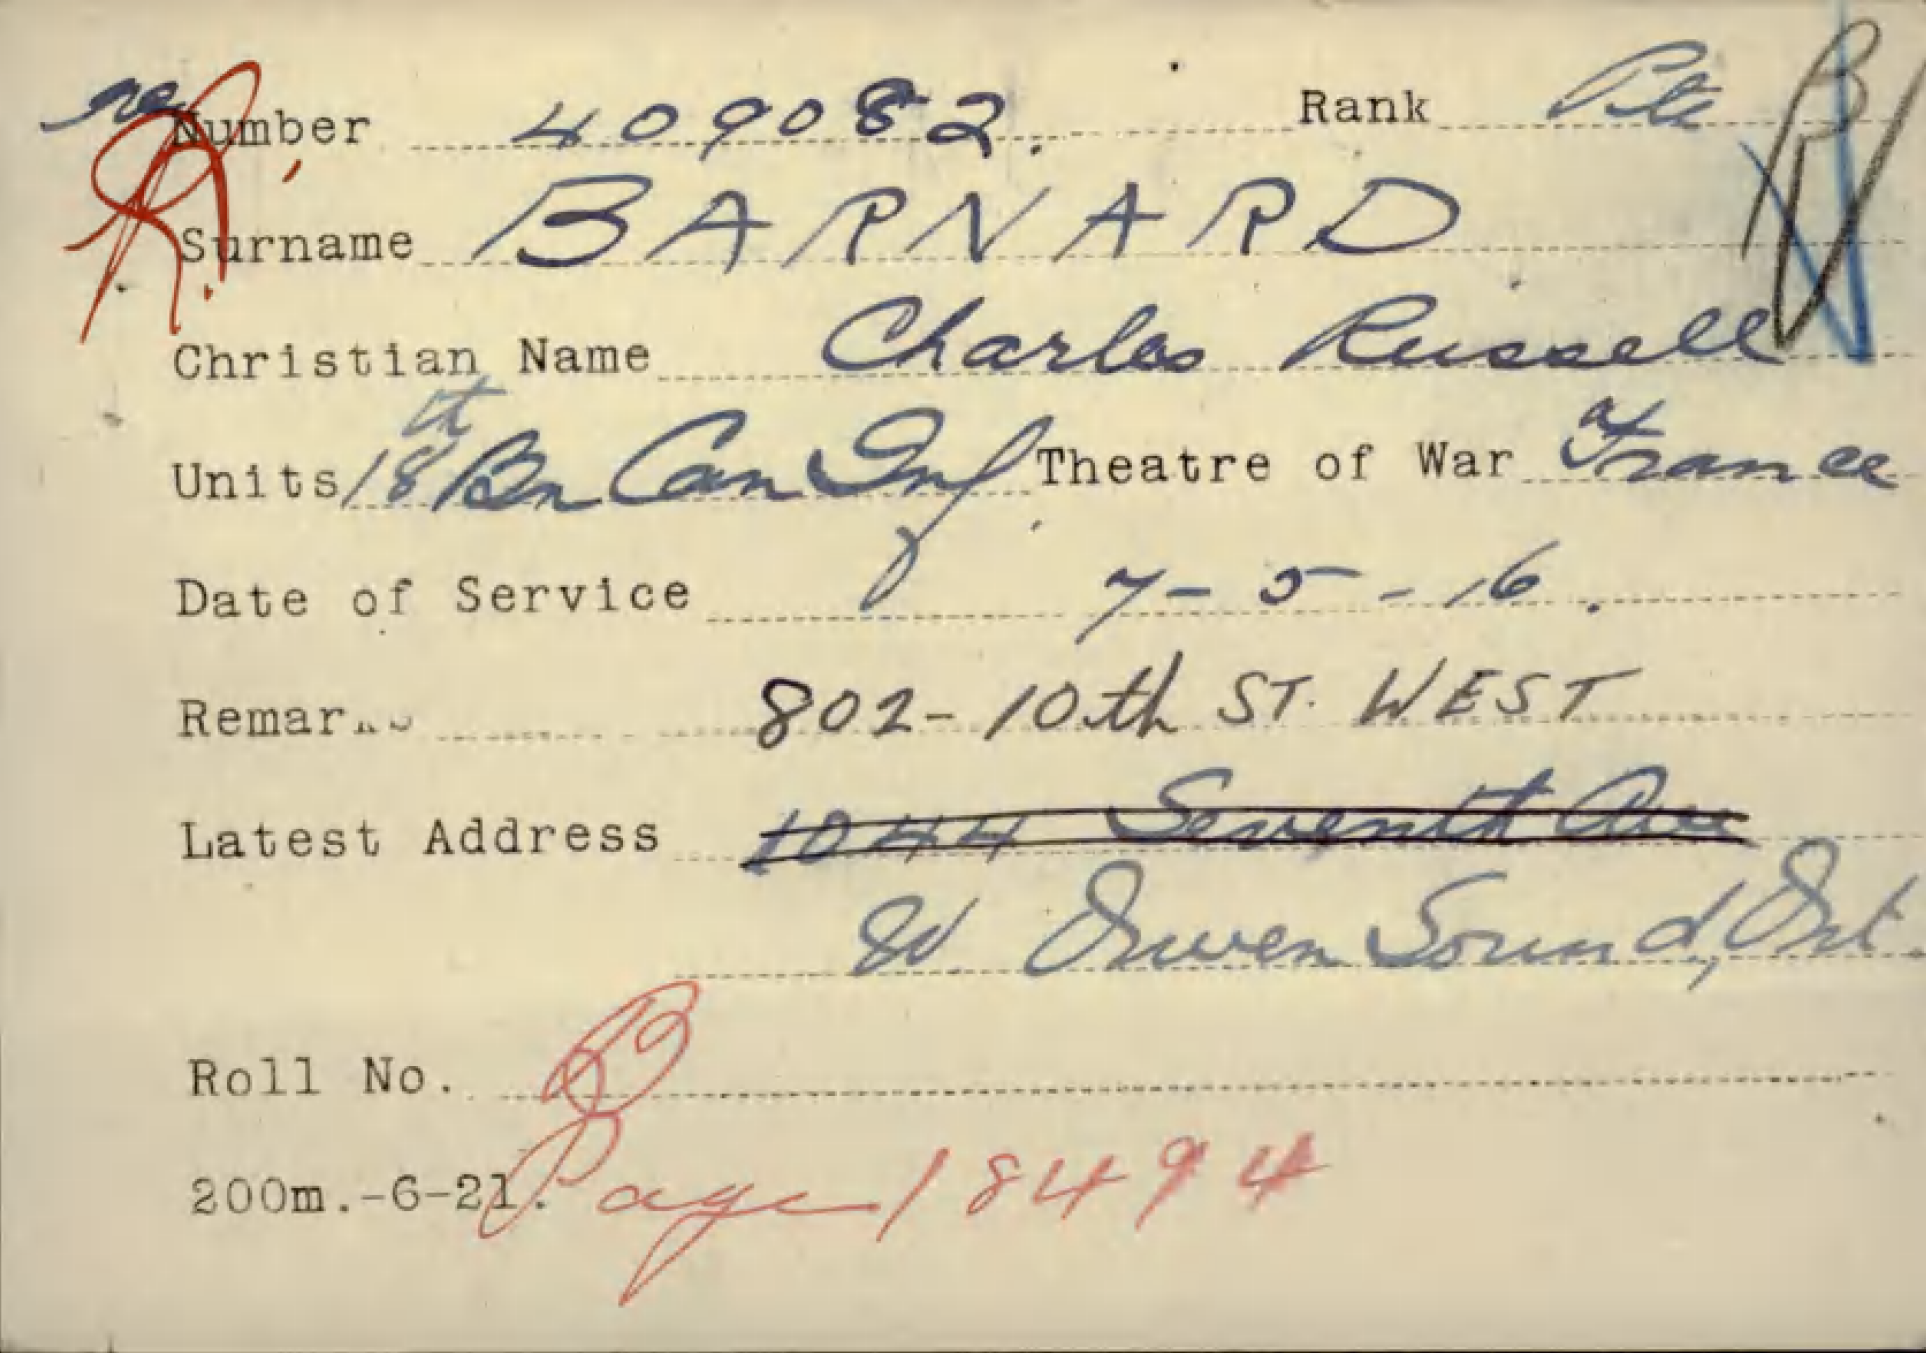 Number 409082. Rank Pte
Surname BARNARD
Christian Name Charles Russell
Units 18th Bn Can Inf Theatre of War France
Date of Service 7-5-16.
Remarks 802-10th ST. WEST
Latest Address 1044 Seventh Ave
W Owen Sound, Ont.
Roll No. B
200m.-6-21. Page 18494